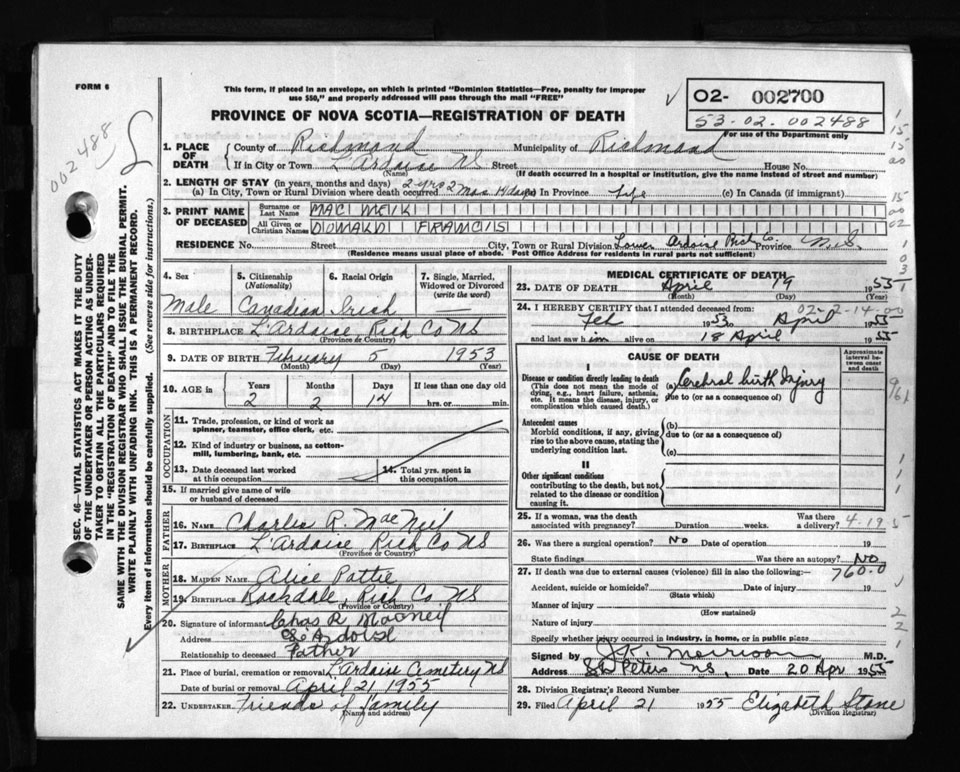 FORM 6
This form, if placed in an envelope, on which is printed "Dominion Statistics—Free, penalty for improper
use $50," and properly addressed will pass through the mail "FREE"
PROVINCE OF NOVA SCOTIA—REGISTRATION OF DEATH
02- 002700
53-02-002488
For use of the Department only
002488
SEC. 46—VITAL STATISTICS ACT MAKES IT THE DUTY
OF THE UNDERTAKER OR PERSON ACTING AS UNDER-
TAKER TO OBTAIN ALL THE PARTICULARS REQUIRED
IN THE "REGISTRATION OF DEATH" AND TO FILE THE
SAME WITH THE DIVISION REGISTRAR WHO SHALL ISSUE THE BURIAL PERMIT.
WRITE PLAINLY WITH UNFADING INK. THIS IS A PERMANENT RECORD.
Every item of information should be carefully supplied. (See reverse side for instructions.)
1. PLACE OF DEATH
County of Richmond Municipality of Richmond
If in City or Town L'Ardoise NS Street House No.
(Name) (If death occurred in a hospital or institution, give the name instead of street and number)
2. LENGTH OF STAY (in years, months and days)
(a) In City, Town or Rural Division where death occurred 2 yrs 2 Mos 14 days (b) in Province Life (c) In Canada (if immigrant)
3. PRINT NAME OF DECEASED
Surname or Last Name MAC NEIL
All Given or Christian Names DONALD FRANCIS
RESIDENCE No. Street City, Town or Rural Division Lower Ardoise Rich Co. Province N.S
(Residence means usual place of abode. Post Office Address for residents in rural parts not sufficient)
4. Sex Male
5. Citizenship (Nationality) Canadian
6. Racial Origin Irish
7. Single, Married, Widowed or Divorced (write the word) —
8. BIRTHPLACE L'Ardoise Rich Co NS
(Province or Country)
9. DATE OF BIRTH February 5 1953
(Month) (Day) (Year)
10. AGE in Years 2 Months 2 Days 14 If less than one day old hrs. or min.
OCCUPATION
11. Trade, profession, or kind of work as
spinner, teamster, office clerk, etc.
12. Kind of industry or business, as cotton-
mill, lumbering, bank, etc.
13. Date deceased last worked at this occupation
14. Total yrs. spent in this occupation
15. If married give name of wife
or husband of deceased
FATHER
16. NAME Charles R. MacNeil
17. BIRTHPLACE L'Ardoise Rich Co NS
(Province or Country)
MOTHER
18. MAIDEN NAME Alice Pattie
19. BIRTHPLACE Rockdale, Rich Co NS
(Province or Country)
20. Signature of informant Chas R MacNeil
Address
Relationship to deceased Father
21. Place of burial, cremation or removal L'Ardoise Cemetery NS
Date of burial or removal April 21 1955
22. UNDERTAKER Friends of family
(Name and address)
MEDICAL CERTIFICATE OF DEATH
23. DATE OF DEATH April 19 1955
(Month) (Day) (Year)
02-2-14-00
24. I HEREBY CERTIFY that I attended deceased from:
Feb 1953 to April 1955
and last saw him alive on 18 April 1955
CAUSE OF DEATH
Approximate interval between onset and death
I
Disease or condition directly leading to death (a) Cerebral birth Injury
(This does not mean the mode of
dying, e.g., heart failure, asthenia,
etc. It means the disease, injury, or
complication which caused death.)
due to (or as a consequence of)
Antecedent causes
Morbid conditions, if any, giving
rise to the above cause, stating the
underlying condition last.
(b)
due to (or as a consequence of)
(c)
II
Other significant conditions
contributing to the death, but not
related to the disease or condition
causing it.
25. If a woman, was the death
associated with pregnancy? Duration weeks. Was there a delivery?
4-19 5
26. Was there a surgical operation? No Date of operation 19
State findings Was there an autopsy? NO
760.0
27. If death was due to external causes (violence) fill in also the following:—
Accident, suicide or homicide? Date of injury 19
(State which)
Manner of injury
(How sustained)
Nature of injury
Specify whether injury occurred in industry, in home, or in public place
Signed by J.R. Morrison M.D.
Address St Peters NS, Date 20 Apr 1955
28. Division Registrar's Record Number
29. Filed April 21 1955 Elizabeth Stone
(Division Registrar)